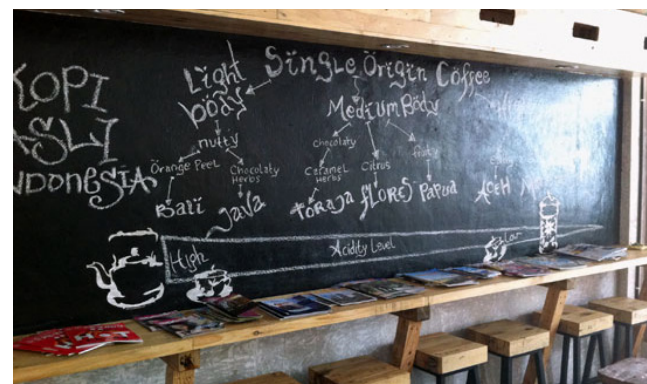 KOPI
ASLI
INDONESIA
Single Origin Coffee
Light
body
nutty
Orange Peel
Chocolaty
Herbs
Bali
Java
Medium Body
chocolaty
Caramel
herbs
Toraja
Citrus
FLORES
fruity
Papua
ACEH
High
Acidity Level
Low